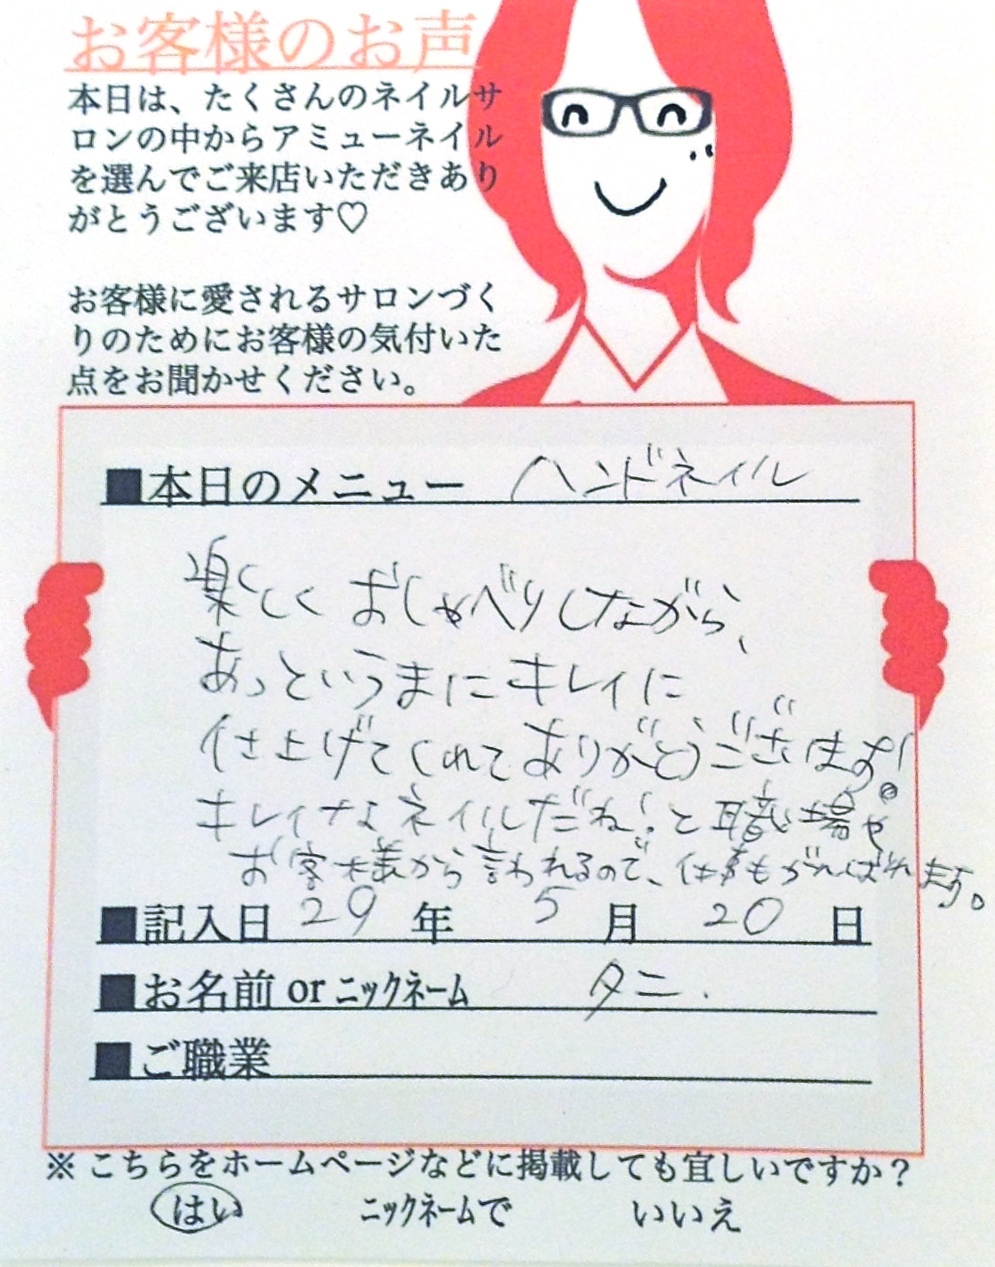 お客様のお声
本日は、たくさんのネイルサ
ロンの中からアミューネイル
を選んでご来店いただきあり
がとうございます♡
お客様に愛されるサロンづく
りのためにお客様の気付いた
点をお聞かせください。
■本日のメニュー ハンドネイル
楽しく おしゃべりしながら、
あっというまにキレイに
仕上げてくれてありがとうございます!
キレイなネイルだね!と職場や
お客様から言われるので、仕事もがんばれます。
■記入日 29 年 5 月 20 日
■お名前 or ニックネーム タニ.
■ご職業
※こちらをホームページなどに掲載しても宜しいですか?
はい ニックネームで いいえ